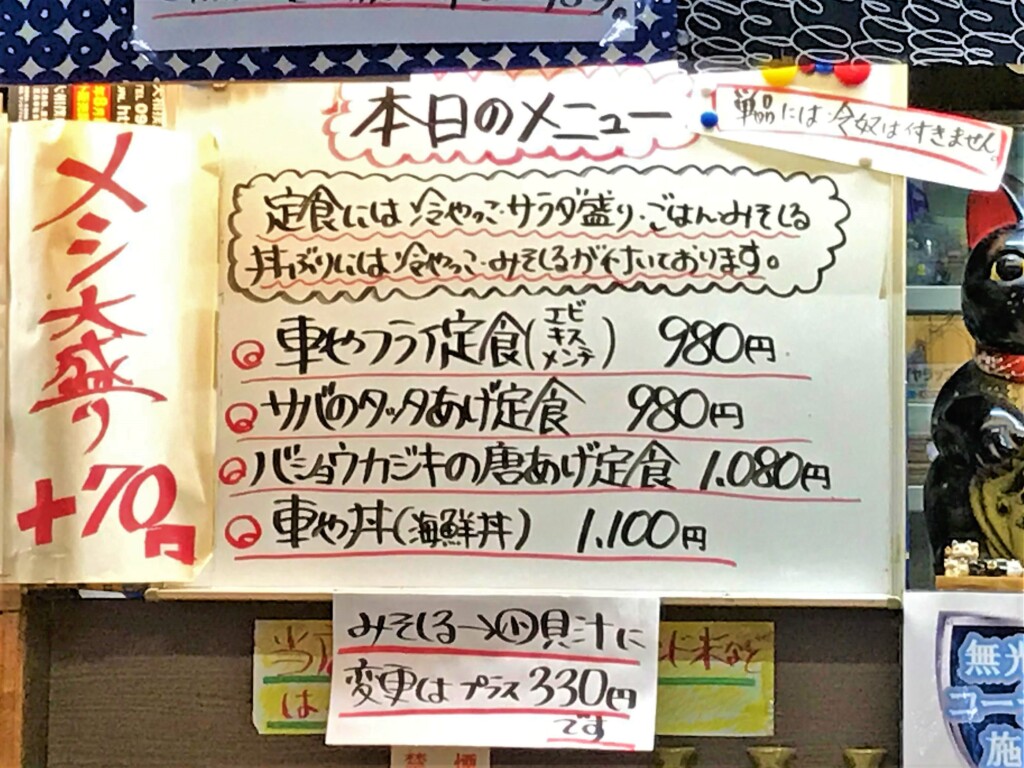 本日のメニュー
単品には冷奴は付きません。
定食には冷やっこ・サラダ盛り・ごはん・みそしる
丼ぶりには冷やっこ・みそしるが付いております。
車やフライ定食(エビ キス メンチ) 980円
サバのタッタあげ定食 980円
バショウカジキの唐あげ定食 1.080円
車や丼(海鮮丼) 1.100円
メシ大盛り
+70円
みそしる→小貝汁に
変更はプラス330円
です
当
は
禁煙
無光
コー
施